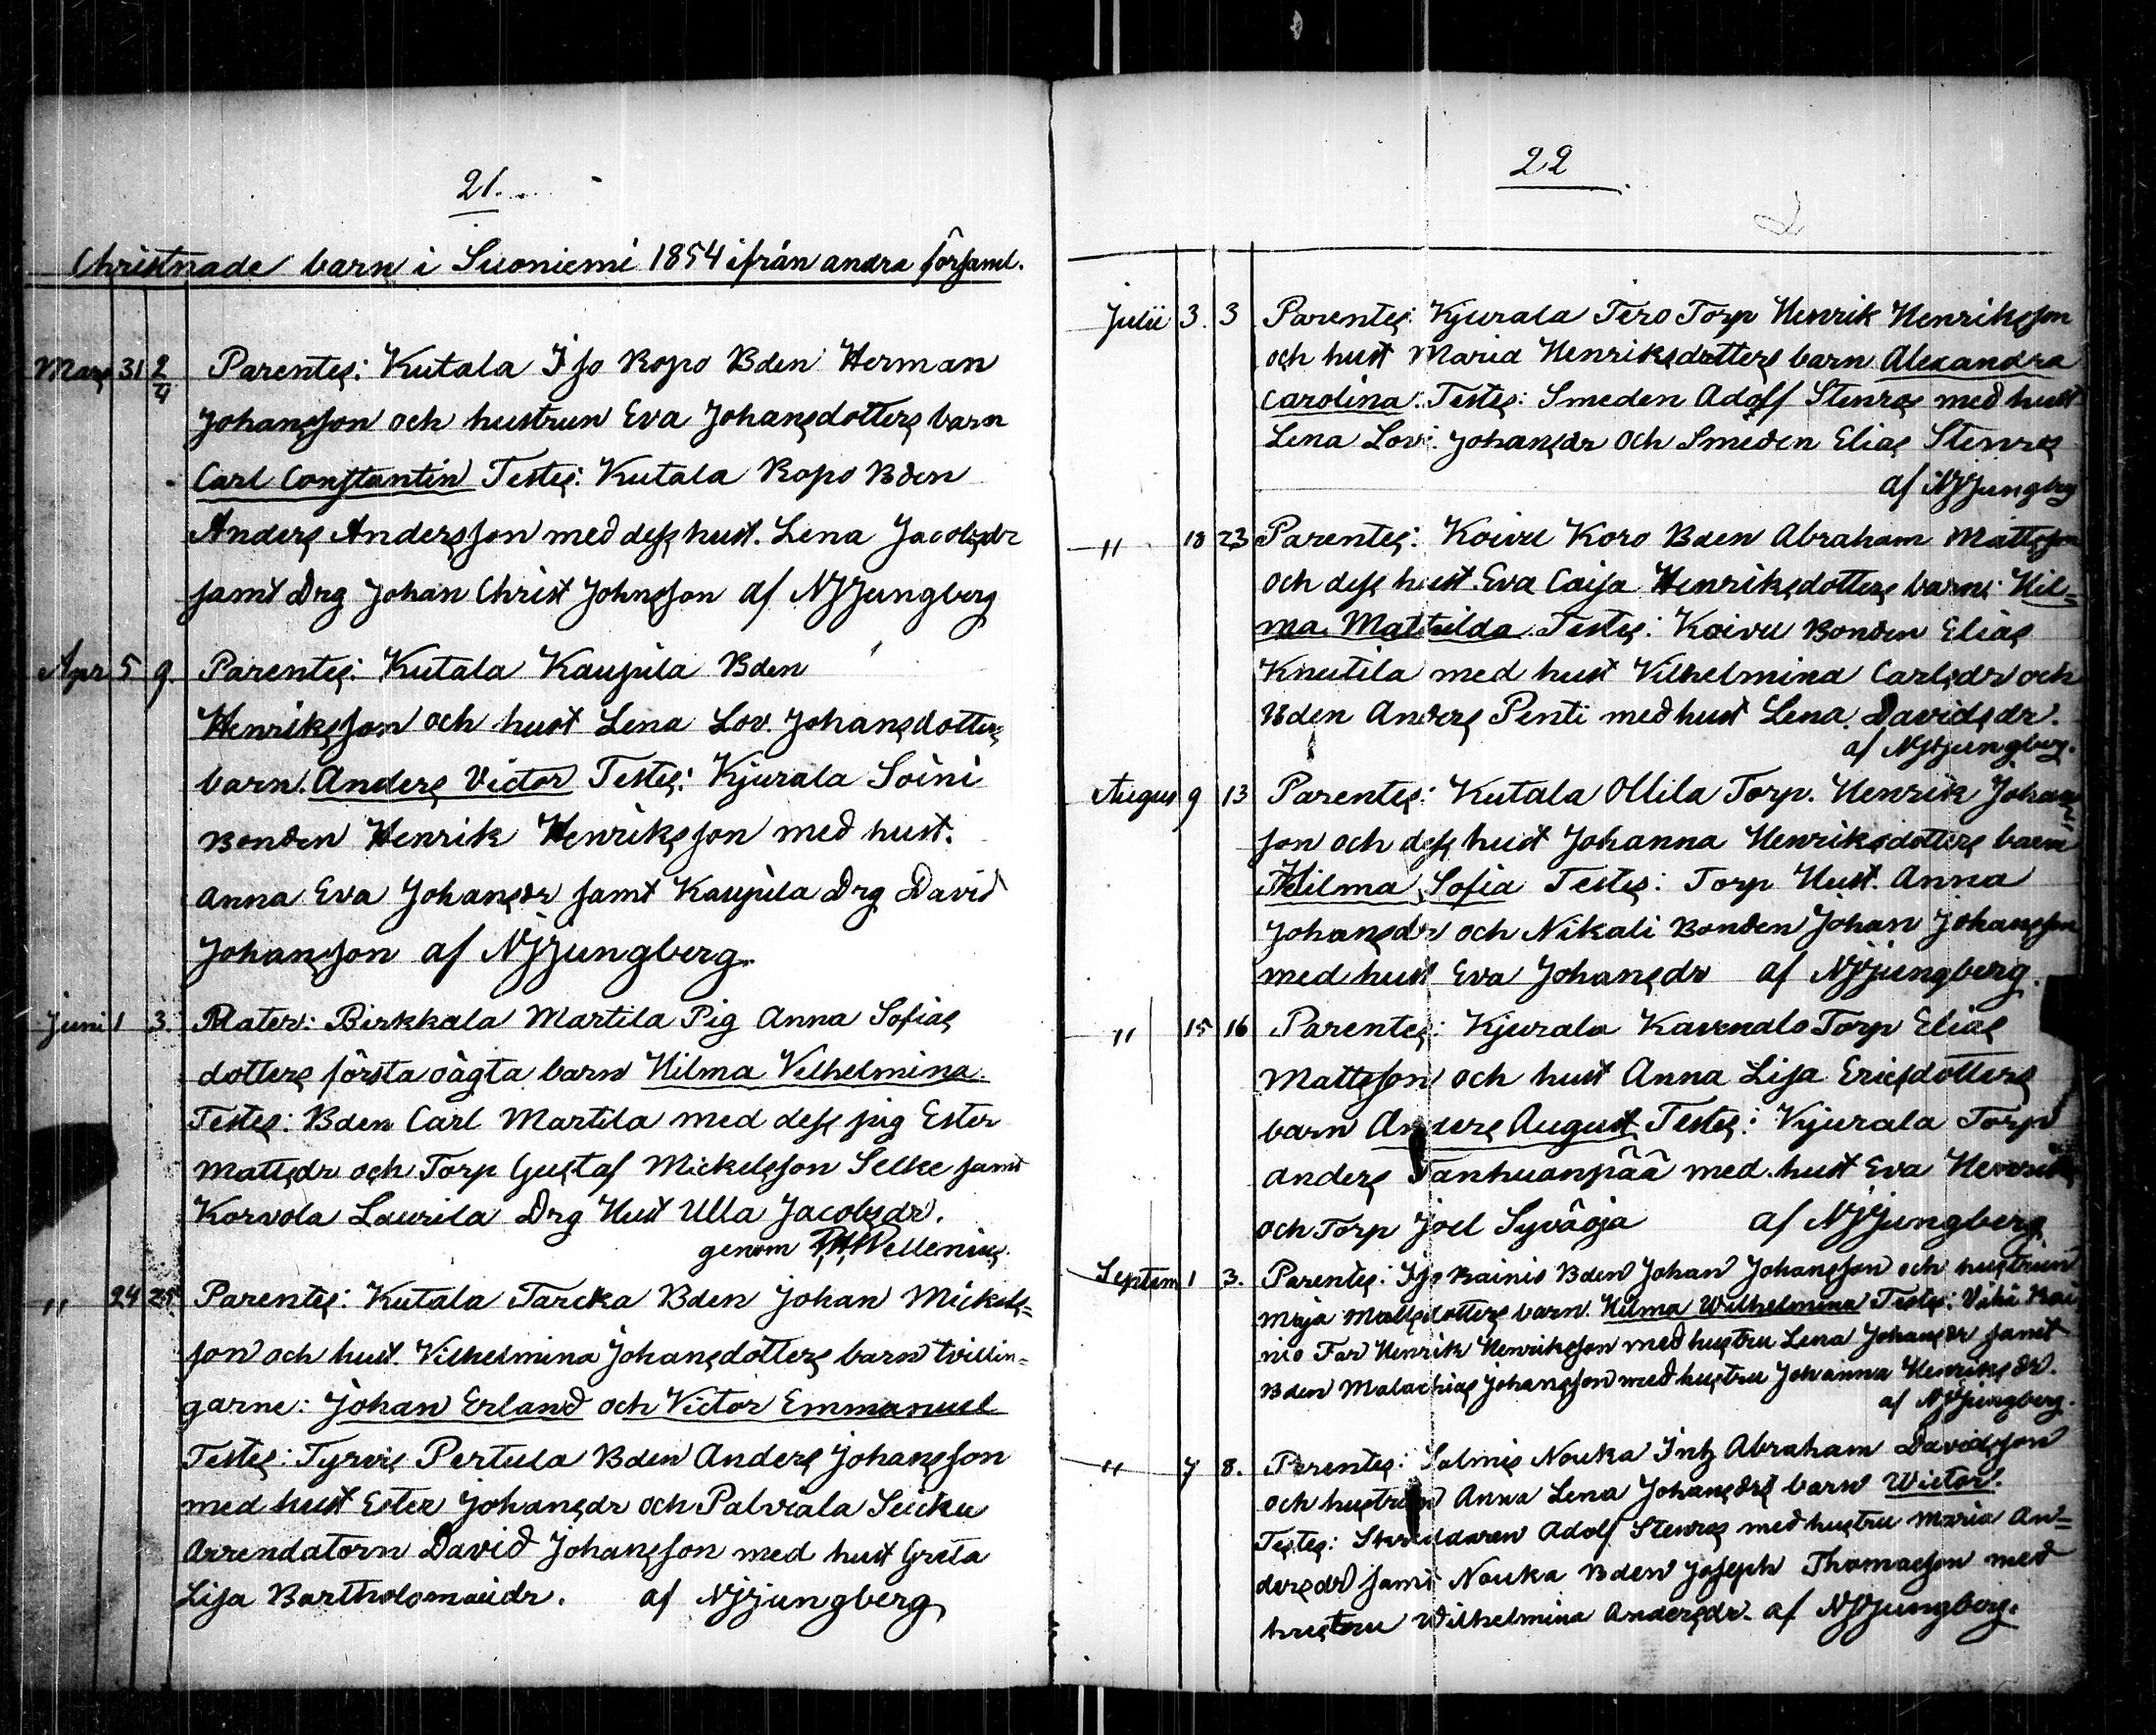 21.
Christnade barn i Suoniemi 1854 ifrån andra församl.
Mars 31 2/4 Parentes: Kutala Iso Ropo Bden Herman
Johansson och hustrun Eva Johansdotters barn
Carl Constantin Testes: Kutala Ropo Bden
Anders Andersson med dess hust. Lena Jacobsdr
samt Drg Johan Christ Johnsson af NJjungberg
Apr 5 9. Parentes: Kutala Kaupila Bden
Henriksson och hust Lena Lov. Johansdotters
barn. Anders Victor Testes: Kjurala Soini
Bonden Henrik Henriksson med hust.
Anna Eva Johansdr samt Kaupila Drg David
Johansson af NJjungberg.
Juni 1 3. Mater: Birkkala Martila Pig Anna Sofias
dotters första oägta barn Hilma Vilhelmina.
Testes: Bden Carl Martila med dess pig Ester
Mattsdr och Torp Gustaf Mickelsson Selke samt
Korvola Laurila Drg Hust Ulla Jacobsdr.
genom Wellenius.
" 24 25 Parentes: Kutala Tarcka Bden Johan Mickels=
son och hust. Vilhelmina Johansdotters barn tvillin=
garne: Johan Erland och Victor Emmanuel
Testes: Tyrvis Pertula Bden Anders Johansson
med hust Ester Johansdr och Palviala Seicku
Arrendatorn David Johansson med hust Greta
Lisa Bartholomaidr. af NJjungberg
22
Julii 3. 3 Parentes: Kjurala Tero Torp Henrik Henriksson
och hust Maria Henriksdotters barn Alexandra
Carolina. Testes: Smeden Adolf Stenros med hust
Lena Lovi. Johansdr och Smeden Elias Stenros
af NJjungbg
" 18 23 Parentes: Koivu Koro Bden Abraham Mattsson
och dess hust. Eva Caisa Henriksdotters barn: Hil=
ma Mattilda. Testes: Koivu Bonden Elias
Knutila med hust Vilhelmina Carlsdr och
Bden Anders Penti med hust Lena Davidsdr.
af NJjungberg.
Augus 9 13 Parentes: Kutala Ollila Torp. Henrik Johans
son och dess hust Johanna Henriksdotters barn
Hilma Sofia Testes: Torp Hust. Anna
Johansdr och Nikali Bonden Johan Johansson
med hust Eva Johansdr af NJjungberg.
" 15 16 Parentes: Kjurala Kavendlo Torp Elias
Mattsson och hust Anna Lisa Ericsdotters
barn Anders August Testes: Kjurala Torp
Anders Tanhuanpää med hust Eva
och Torp Joel Syväoja af NJjungberg
Septem 1 3. Parentes: Iso Rainio Bden Johan Johansson och hustrun
Maja Mattsdotters barn. Hilma Wilhelmina Testes: Vähä Rai
nio Far Henrik Henriksson med hustru Lena Johansdr samt
Bden Malachias Johansson med hustru Johanna Henriksdr.
af NJjungberg.
" 7 8. Parentes: Salmis Nouka Inh Abraham Davidsson
och hustrun Anna Lena Johansdrs barn Wictor.
Testes: Skräddaren Adolf Stenros med hustru Maria An=
dersdr samt Nouka Bden Joseph Thomasson med
hustru Wilhelmina Andersdr. af NJjungberg.